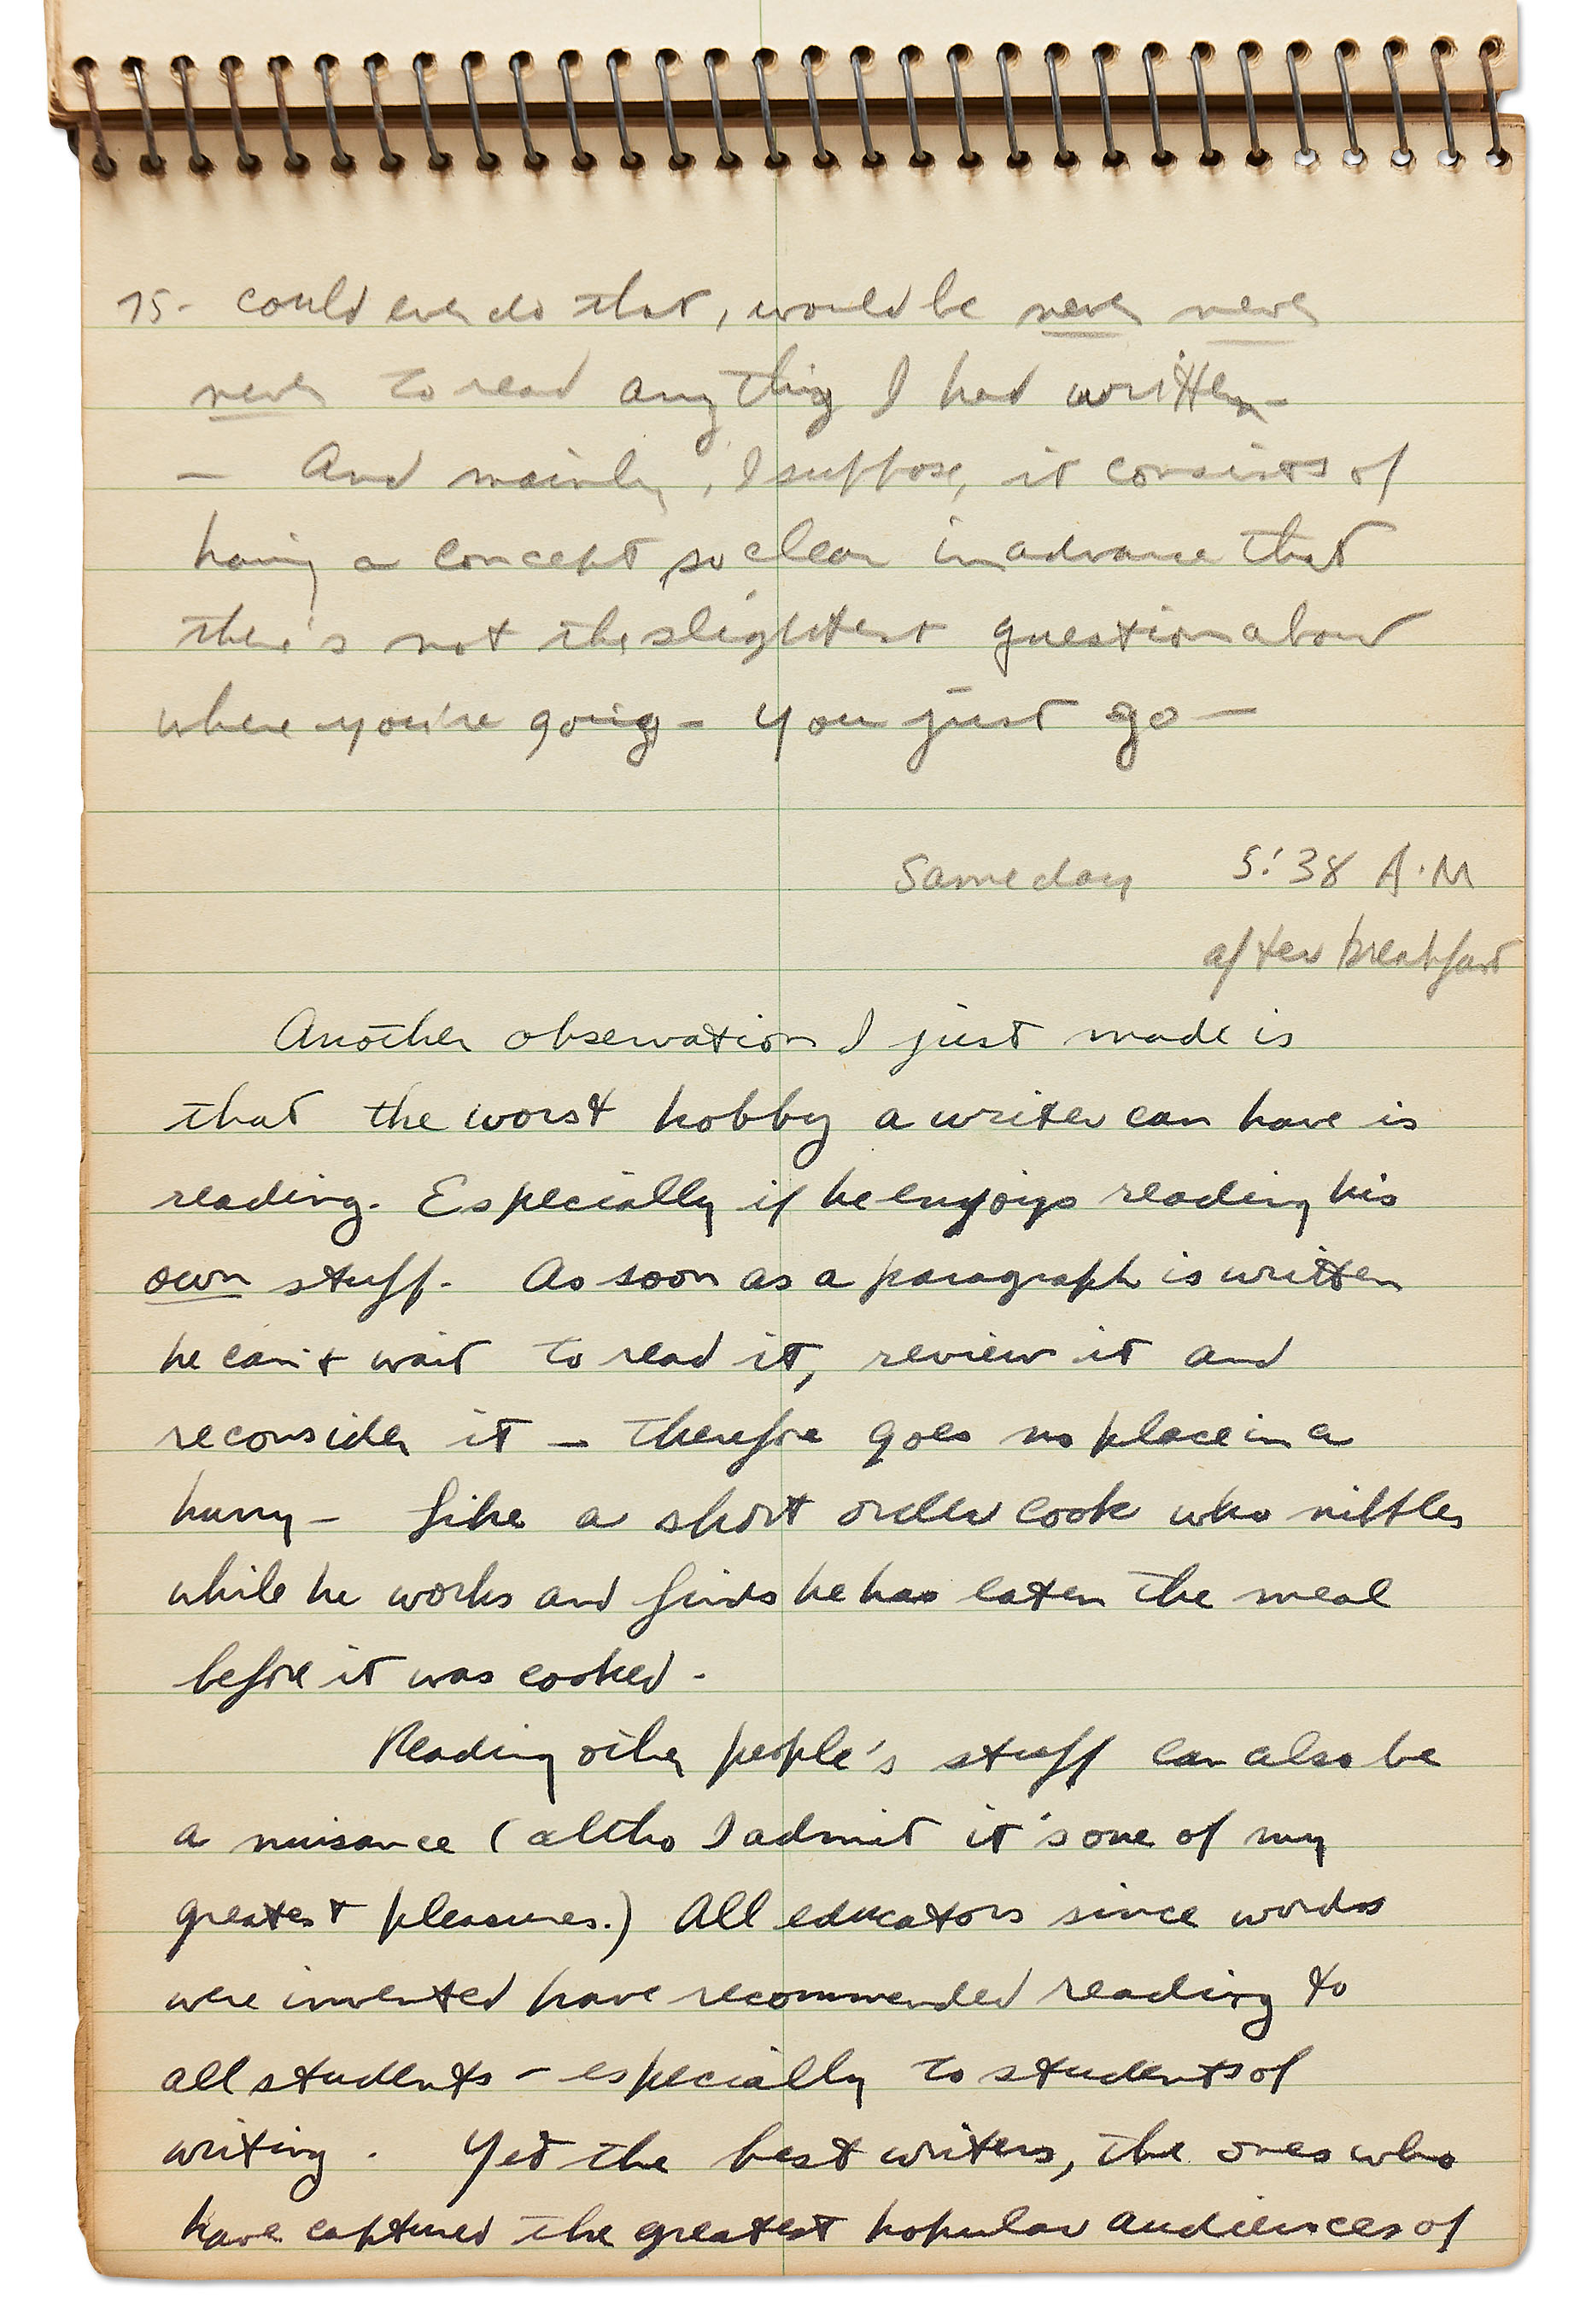 15- could ever do that, would be never never
never to read anything I had written-
- And mainly, I suppose, it consists of
having a concept so clear in advance that
there's not the slightest question about
where you're going - you just go -
Same day 5:38 A.M
after breakfast
Another observation I just made is
that the worst hobby a writer can have is
reading. Especially if he enjoys reading his
own stuff. As soon as a paragraph is written
he can't wait to read it, review it and
reconsider it - therefore goes no place in a
hurry - Like a short order cook who nibbles
while he works and finds he has eaten the meal
before it was cooked.
Reading other people's stuff can also be
a nuisance (altho I admit it's one of my
greatest pleasures.) All educators since words
were invented have recommended reading to
all students - especially to students of
writing. Yet the best writers, the ones who
have captured the greatest popular audiences of